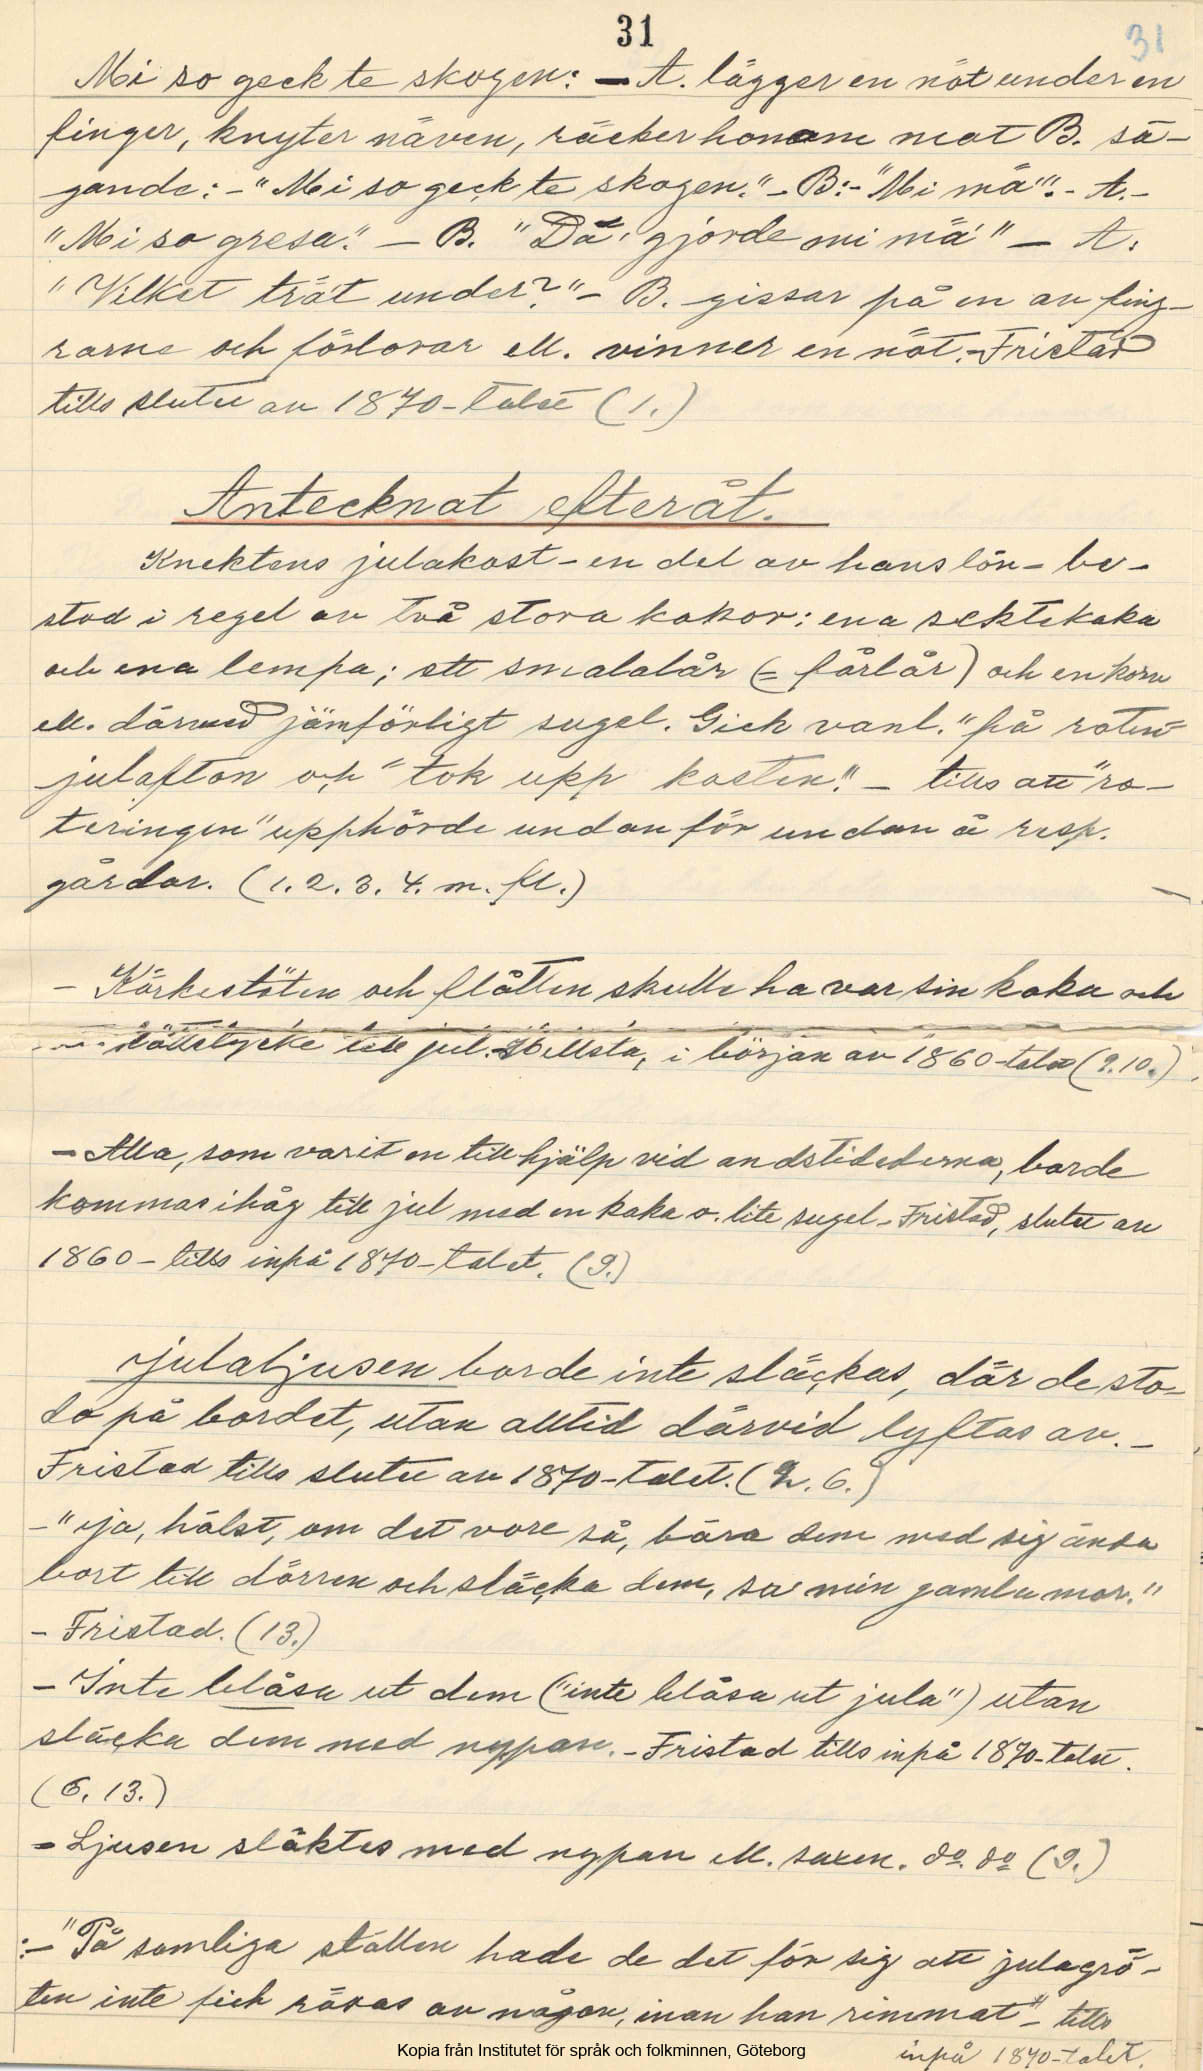 31
31
Mi so geck te skogen: — A. lägger en nöt under en
finger, knyter näven, räcker honom mot B. sä-
gande: - "Mi so geck te skogen." - B:- "Mi mä". - A.-
"Mi so gresa." — B. "Dä' gjorde mi mä" — A:
"Vilket trät under?" - B. gissar på en av fing-
rarne och förlorar ell. vinner en nöt. - Fristad
tills slutet av 1870-talet (1.)
Antecknat efteråt.
Knektens julakost - en del av hans lön - be-
stod i regel av två stora kakor: ena sektekaka
och ena lempa; ett smalalår (= fårlår) och en korv
ell. därmed jämförligt sugel. Gick vanl. "på roten"
julafton och "tok upp kosten." - tills att "ro-
teringen" upphörde undan för undan å resp.
gårdar. (1. 2. 3. 4. m. fl.)
- Körkestöten och flåtten skulle ha var sin kaka och
köttstycke till jul. Hillsta, i början av 1860-talet (9. 10.)
- Alla, som varit en till hjälp vid andstidederna, borde
kommas ihåg till jul med en kaka o. lite sugel - Fristad, slutet av
1860- tills inpå 1870-talet. (9.)
Julaljusen borde inte släckas, där de sto-
do på bordet, utan alltid därvid lyftas av. -
Fristad tills slutet av 1870-talet. (2. 6.)
- "ija, hälst, om det vore så, bära dem med sig ända
bort till dörren och släcka dem, sa' min gamla mor."
- Fristad. (13.)
- Inte blåsa ut dem ("inte blåsa ut jula") utan
släcka dem med nypan. - Fristad tills inpå 1870-talet.
(6. 13.)
- Ljusen släktes med nypan ell. saxen. do. do (9.)
:- "På somliga ställen hade de det för sig att julagrö-
ten inte fick röras av någon, innan han rimmat" - tills
inpå 1870-talet.
Kopia från Institutet för språk och folkminnen, Göteborg